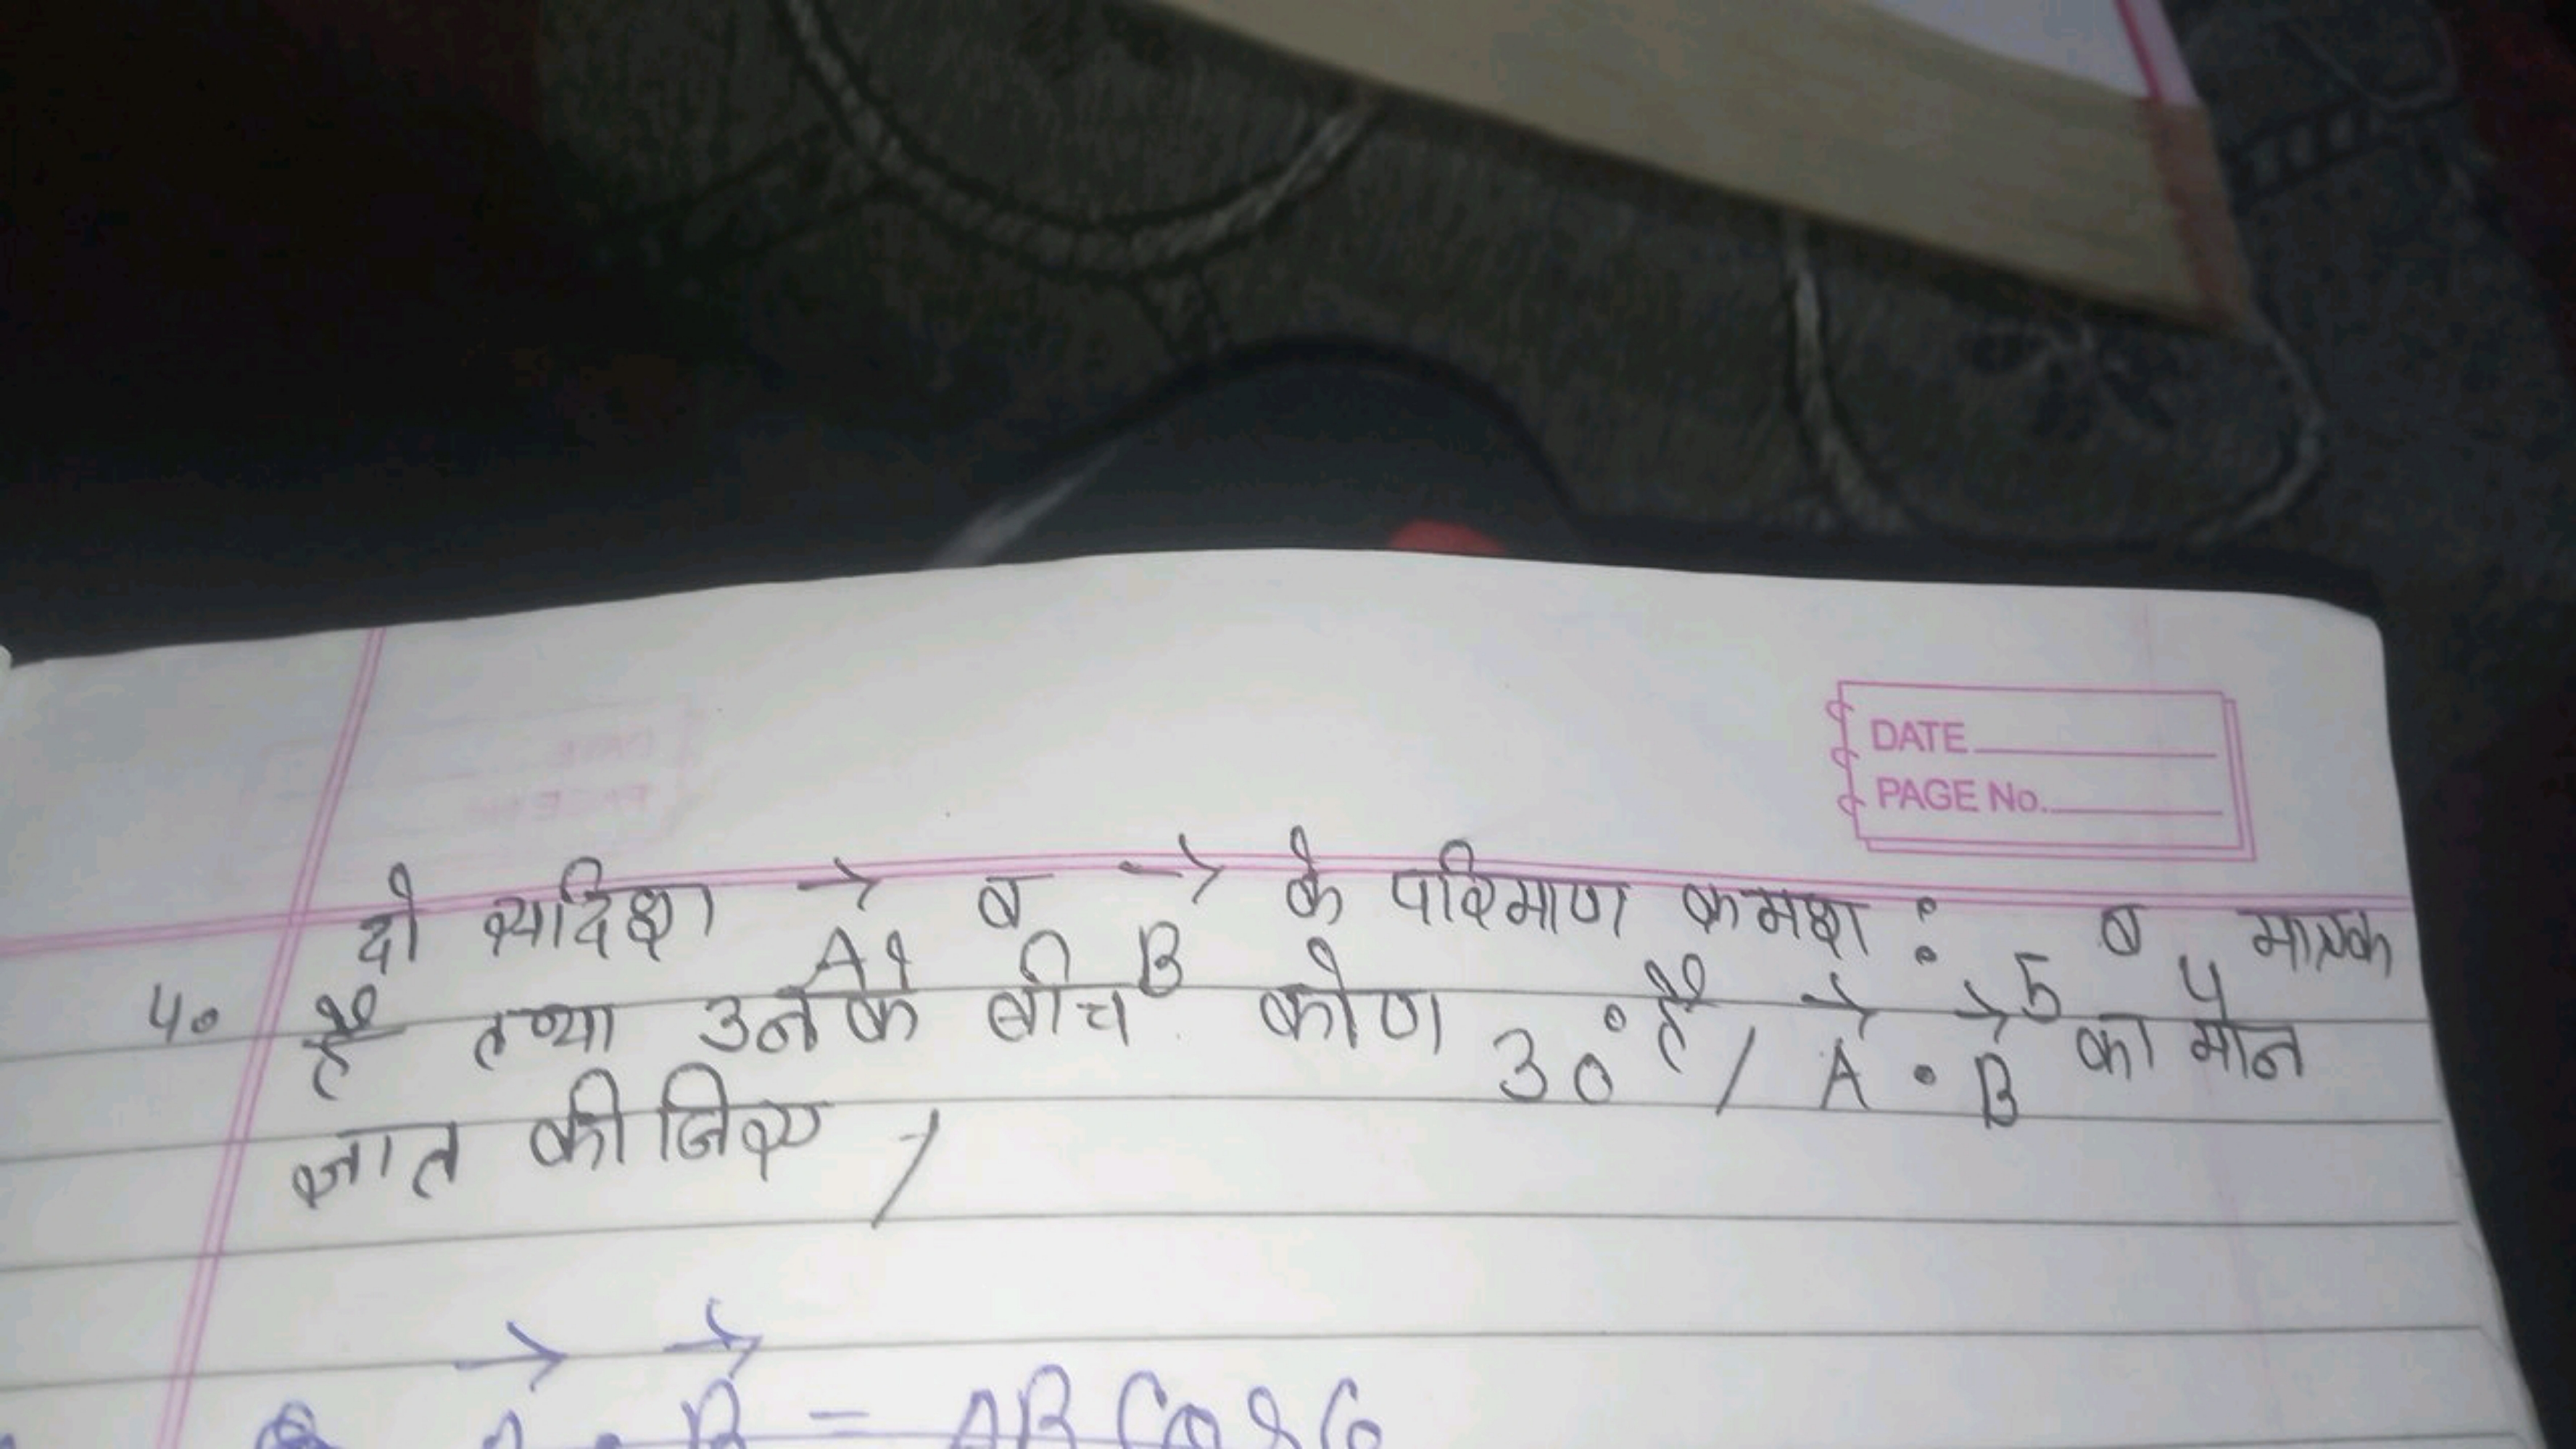 DATE
PAGE No.
4. दो सदिश A→ व B→ के परिमाण क्रमश : 5 व 4 मात्रक
है तथा उनके बीच कोण 30° है / A→ • B→ का मान
ज्ञात कीजिए /
B→ = AB Cos